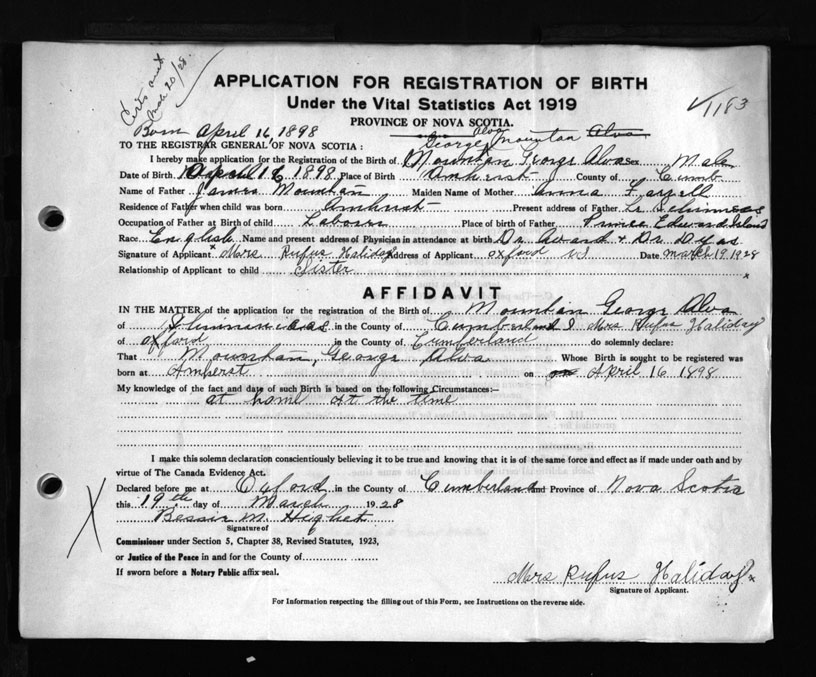 Certs sent
Mch 20/28
APPLICATION FOR REGISTRATION OF BIRTH
Under the Vital Statistics Act 1919
PROVINCE OF NOVA SCOTIA.
Born April 16, 1898
George Alva Mountan Alva
TO THE REGISTRAR GENERAL OF NOVA SCOTIA:
I hereby make application for the Registration of the Birth of Mountan George Alva Sex Male
Date of Birth April 16 1898 Place of Birth Amherst County of Cumb
Name of Father James Mountan Maiden Name of Mother Anna
Residence of Father when child was born Amhurst Present address of Father
Occupation of Father at Birth of child Labour Place of birth of Father Prince Edward Island
Race English Name and present address of Physician in attendance at birth Dr Avard + Dr Dyas
Signature of Applicant Mrs Rufus Haliday Address of Applicant Oxford NS Date March 19 1928
Relationship of Applicant to child Sister
AFFIDAVIT
IN THE MATTER of the application for the registration of the Birth of Mountan George Alva
of in the County of Cumberland I Mrs Rufus Haliday
of Oxford in the County of Cumberland do solemnly declare:
That Mountan, George Alva Whose Birth is sought to be registered was
born at Amherst on April 16 1898
My knowledge of the fact and date of such Birth is based on the following Circumstances:—
at home at the time
I make this solemn declaration conscientiously believing it to be true and knowing that it is of the same force and effect as if made under oath and by
virtue of The Canada Evidence Act.
Declared before me at Oxford in the County of Cumberland and Province of Nova Scotia
this 19th day of March 1928
Bessie M. Hughet
Signature of
Commissioner under Section 5, Chapter 38, Revised Statutes, 1923,
or Justice of the Peace in and for the County of
If sworn before a Notary Public affix seal.
Mrs Rufus Haliday x
Signature of Applicant.
For Information respecting the filling out of this Form, see Instructions on the reverse side.